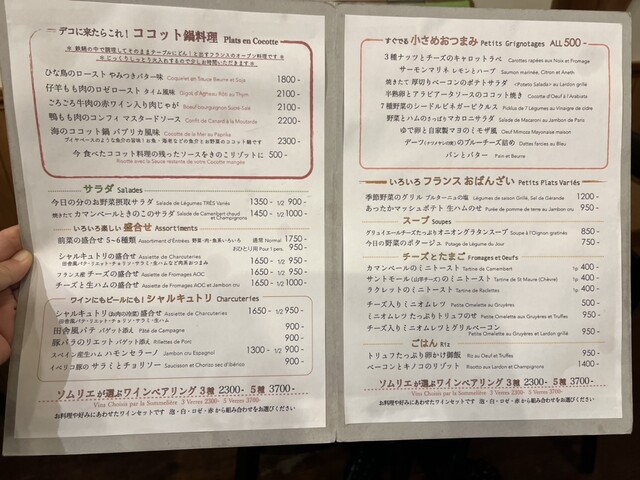 デコに来たらこれ！ ココット鍋料理 Plats en Cocotte
※ 鉄鍋の中で調理してそのままテーブルにどん！と出すフランスのオーブン料理です ※
※ じっくりしっとり火入れするので少しお時間いただきます ※
ひな鳥のロースト やみつきバター味 Coquelet en Sauce Beurre et Soja 1800-
仔羊もも肉のロゼロースト タイム風味 Gigot d'Agneau Rôti au Thym 2100-
ごろごろ牛肉の赤ワイン入り肉じゃが Boeuf bourguignon Sucré Salé 2100-
鴨もも肉のコンフィ マスタードソース Confit de Canard à la Moutarde 2200-
海のココット鍋 パプリカ風味 Cocotte de la Mer au Paprika 2300-
ブイヤベースのような魚介の旨味！お魚・海老などの魚介とお野菜のココット鍋です
今 食べたココット料理の残ったソースをきのこリゾットに 500-
Risotto avec la Sauce restante de votre Cocotte mangée
サラダ Salades
今日の分のお野菜摂取サラダ Salade de Légumes TRÈS Variés 1350- 1/2 900-
焼きたて カマンベールときのこのサラダ Salade de Camembert chaud et Champignons 1450- 1/2 1000-
いろいろ楽しい 盛合せ Assortiments
前菜の盛合せ 5~6種類 Assortiment d'Entrées 野菜・肉・魚系いろいろ 通常 Normal 1750-
おひとり用 Pour 1 pers. 950-
シャルキュトリの盛合せ Assiette de Charcuteries 1650- 1/2 950-
田舎風パテ・リエット・チョリソ・サラミ・生ハムなど肉系おつまみ
フランス産 チーズの盛合せ Assiette de Fromages AOC 1650- 1/2 950-
チーズと生ハムの盛合せ Assiette de Fromages AOC et Jambon cru 1650- 1/2 1000-
ワインにもビールにも！シャルキュトリ Charcuteries
シャルキュトリ(お肉の冷菜)盛合せ Assiette de Charcuteries 1650- 1/2 950-
田舎風パテ・リエット・チョリソ・サラミ・生ハム
田舎風パテ バゲット添え Pâté de Campagne 900-
豚バラのリエット バゲット添え Rillettes de Porc 900-
スペイン産生ハム ハモンセラーノ Jambon cru Espagnol 1300- 1/2 900-
イベリコ豚の サラミとチョリソー Saucisson et Chorizo sec d'Ibérico 900-
ソムリエが選ぶワインペアリング 3種 2300- 5種 3700-
Vins Choisis par la Sommelière 3 Verres 2300- 5 Verres 3700-
お料理や好みにあわせたワインセットです 泡・白・ロゼ・赤から組み合わせをお選びください
すぐでる 小さめおつまみ Petits Grignotages ALL 500-
3種ナッツとチーズのキャロットラペ Carottes rapées aux Noix et Fromage
サーモンマリネ レモンとハーブ Saumon mariné, Citron et Aneth
焼きたて 厚切りベーコンのポテトサラダ «Potatoes Salada» au Lardon grillé
半熟卵とアラビアータソースのココット焼き Cocotte d'Oeuf à l'Arabiata
7種野菜のシードルビネガーピクルス Pickles de 7 Légumes au Vinaigre de cidre
野菜とハムのさっぱりマカロニサラダ Salade de Macaroni au Jambon de Paris
ゆで卵と自家製マヨのミモザ風 Oeuf Mimosa Mayonaise maison
デーツ(ナツメヤシの実)のブルーチーズ詰め Dattes farcies au Bleu
パンとバター Pain et Beurre
いろいろ フランス おばんざい Petits Plats Variés
季節野菜のグリル ブルターニュの塩 Légumes de saison Grillé, Sel de Gérande 1200-
あったかマッシュポテト 生ハムのせ Purée de pomme de terre au Jambon cru 950-
スープ Soupes
グリュイエールチーズたっぷり オニオングラタンスープ Soupe à l'Oignon gratinés 850-
今日の野菜のポタージュ Potage de Légume du Jour 750-
チーズとたまご Fromages et Oeufs
カマンベールのミニトースト Tartine de Camembert 1p 400-
サントモール(山羊チーズ)のミニトースト Tartine de St Maure (Chèvre) 1p 400-
ラクレットのミニトースト Tartine de Raclettes 1p 400-
チーズ入りミニオムレツ Petite Omelette au Gruyères 500-
ミニオムレツ たっぷりトリュフのせ Petite Omelette au Gruyères et Truffes 950-
チーズ入りミニオムレツとグリルベーコン Petite Omelette au Gruyères et Lardon grillé 950-
ごはん Riz
トリュフたっぷり卵かけ御飯 Riz au Oeuf et Truffes 950-
ベーコンとキノコのリゾット Risotto aux Lardon et Champignons 1400-
ソムリエが選ぶワインペアリング 3種 2300- 5種 3700-
Vins Choisis par la Sommelière 3 Verres 2300- 5 Verres 3700-
お料理や好みにあわせたワインセットです 泡・白・ロゼ・赤 から組み合わせをお選びください